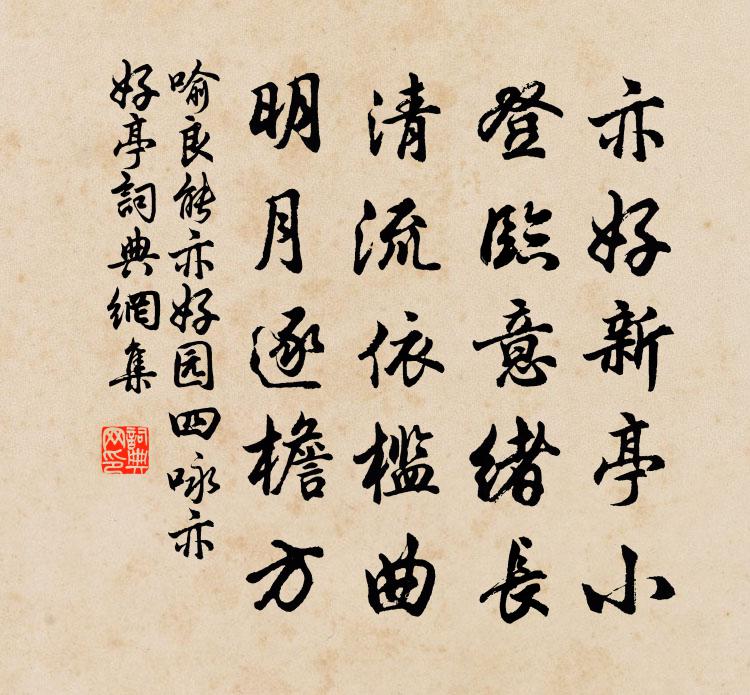 亦好新亭小
登臨意緒長
清流依檻曲
明月逐檐方
喻良能亦好园四咏亦
好亭詞典網集
詞典网印